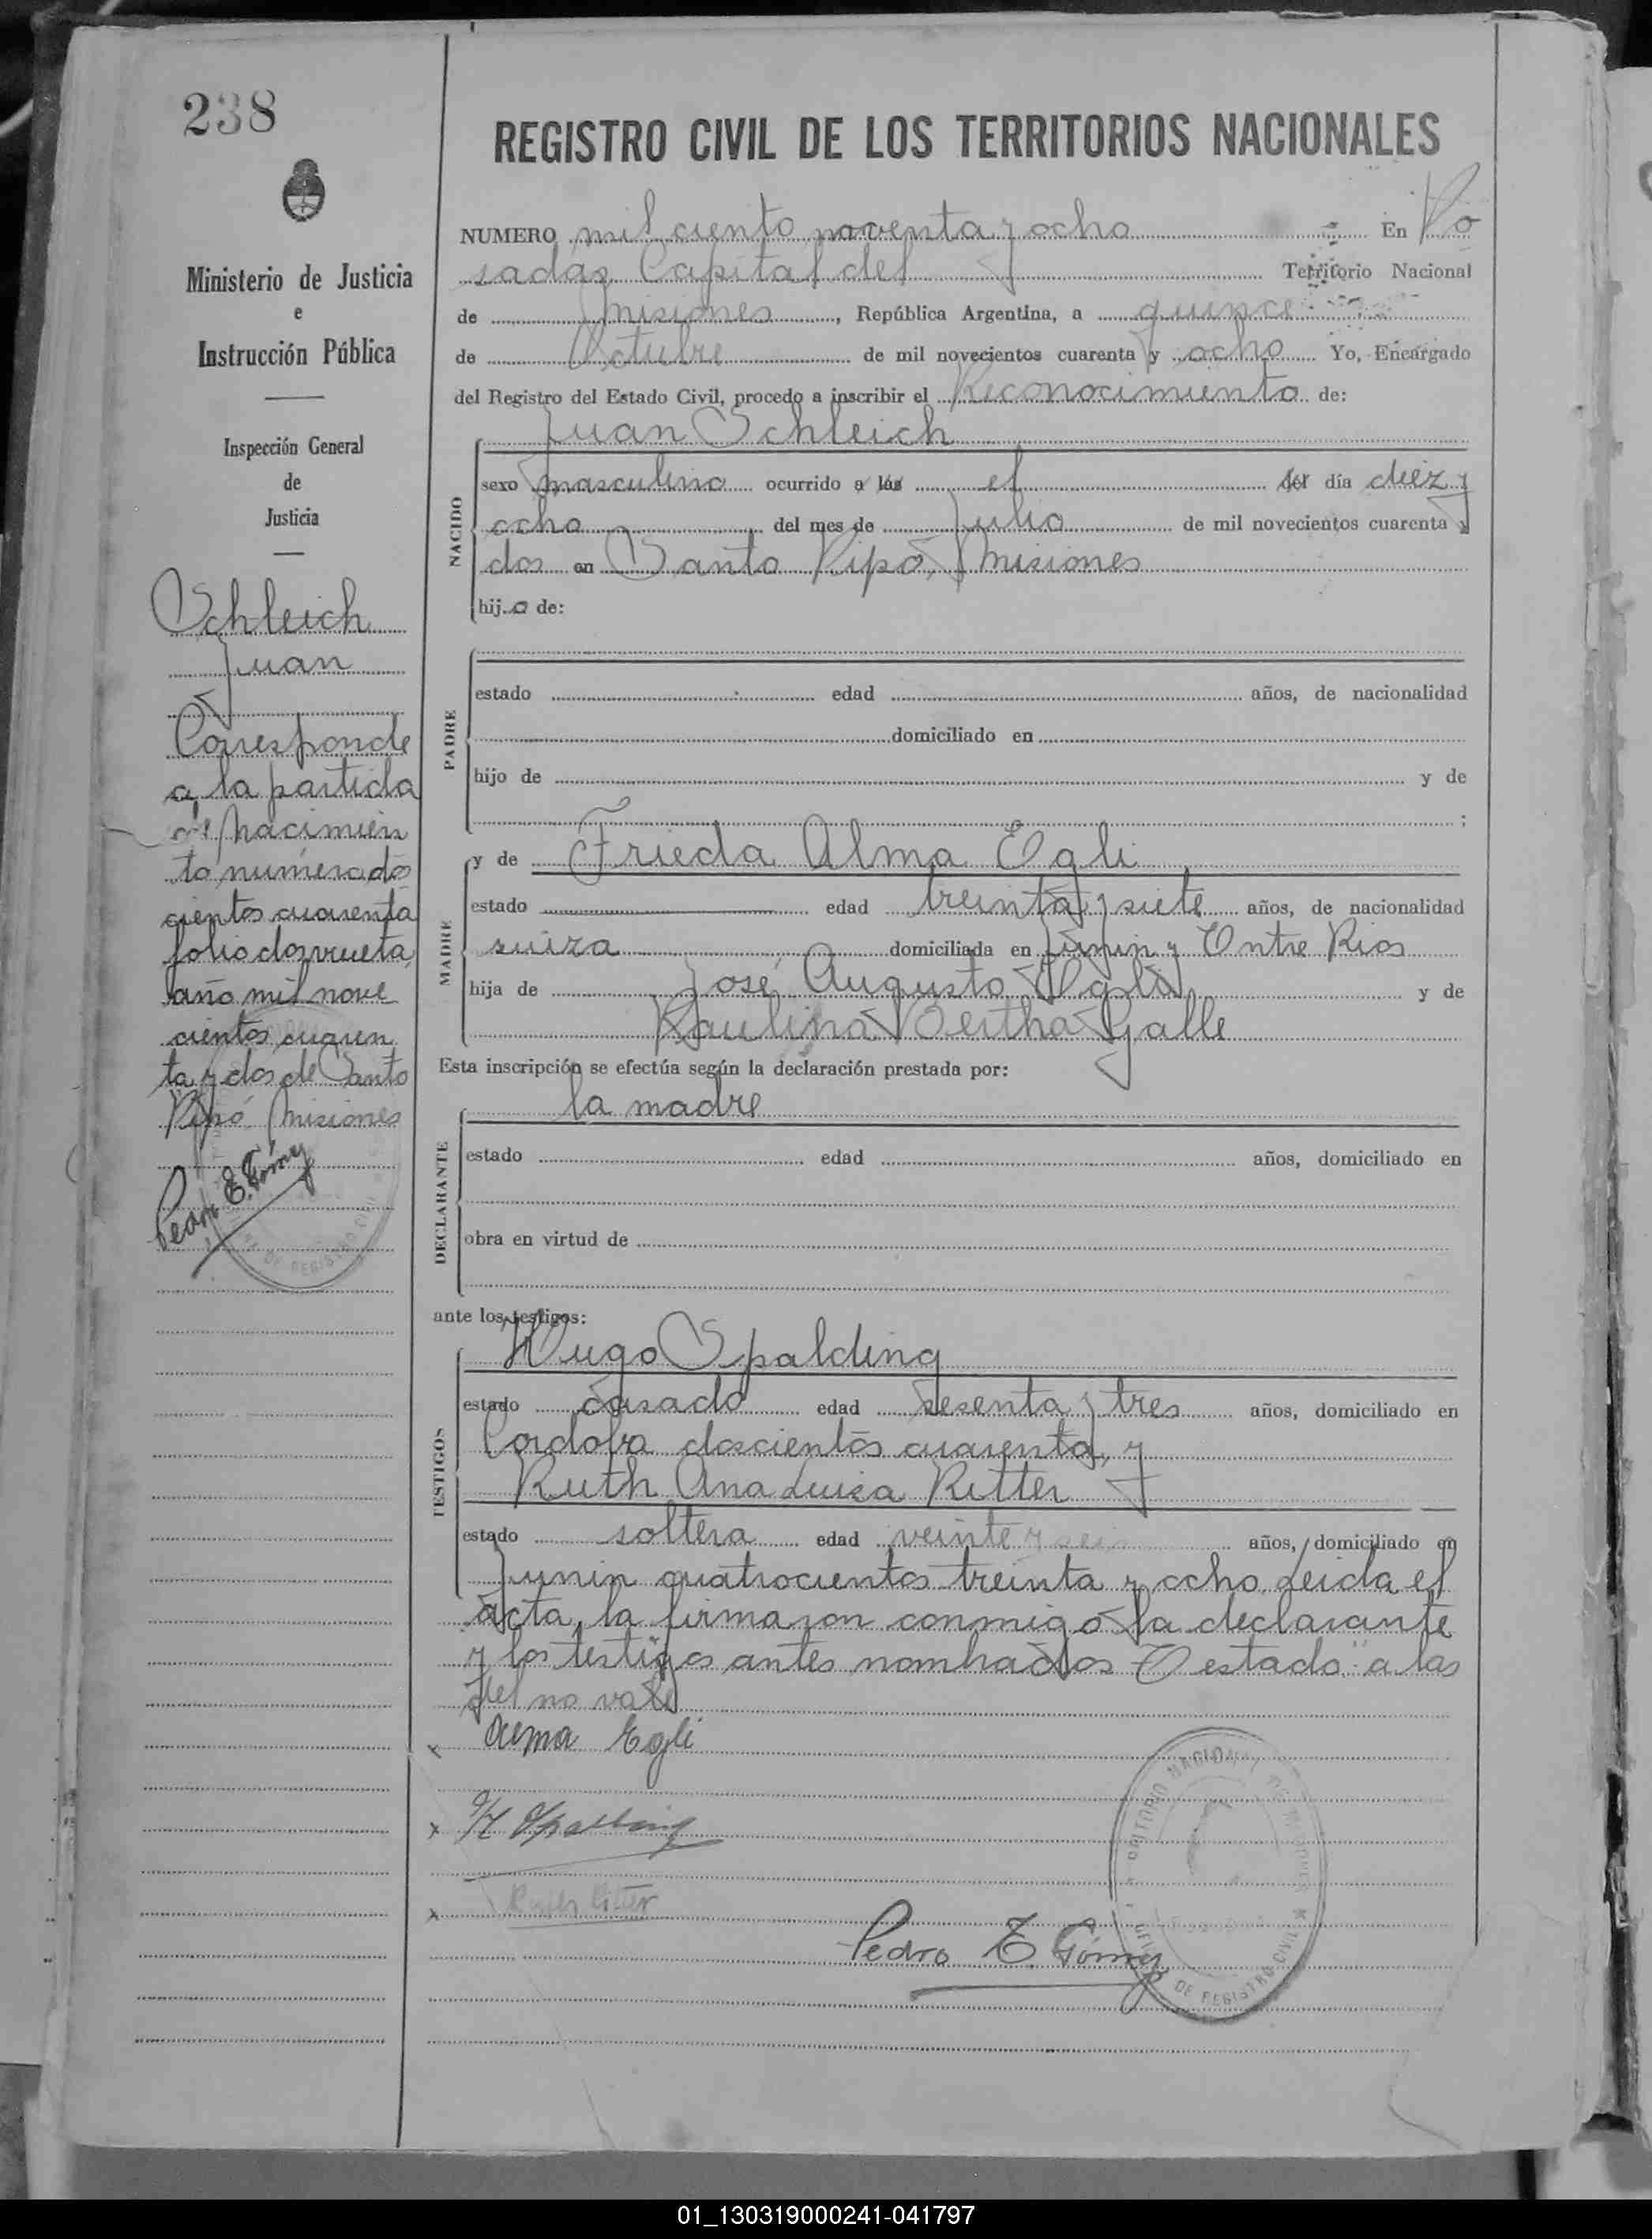 238
REGISTRO CIVIL DE LOS TERRITORIOS NACIONALES
Ministerio de Justicia
e
Instrucción Pública
Inspección General
de
Justicia
Schleich
Juan
Corresponde
a la partida
de nacimien
to numero dos
cientos cuarenta
folio dos vuelta,
año mil nove
cientos cuaren
ta y dos de Santo
Pipó Misiones
Pedro E. Gómez
NUMERO mil ciento noventa y ocho En Po
sadas, Capital del Territorio Nacional
de Misiones, República Argentina, a quince
de Octubre de mil novecientos cuarenta y ocho Yo, Encargado
del Registro del Estado Civil, procedo a inscribir el Reconocimiento de:
Juan Schleich
NACIDO
sexo masculino ocurrido a las el del día diez y
ocho del mes de Julio de mil novecientos cuarenta y
dos en Santo Pipó, Misiones
hijo de:
PADRE
estado edad años, de nacionalidad
domiciliado en
hijo de y de
;
MADRE
y de Frieda Alma Egli
estado edad treinta y siete años, de nacionalidad
suiza domiciliada en Junin y Entre Rios
hija de José Augusto Egli y de
Paulina Bertha Galle
Esta inscripción se efectúa según la declaración prestada por:
DECLARANTE
la madre
estado edad años, domiciliado en
obra en virtud de
ante los testigos:
TESTIGOS
Hugo Spalding
estado casado edad sesenta y tres años, domiciliado en
Cordoba doscientos cuarenta, y
Ruth Ana Luisa Ritter
estado soltera edad veinte y seis años, domiciliado en
Junin cuatrocientos treinta y ocho. Leida el
acta, la firmaron conmigo la declarante
y los testigos antes nombrados. estado "a las
del no vale
Alma Egli
H Spalding
Ritter
Pedro E. Gómez
DE REGISTRO CIVIL
01_130319000241-041797